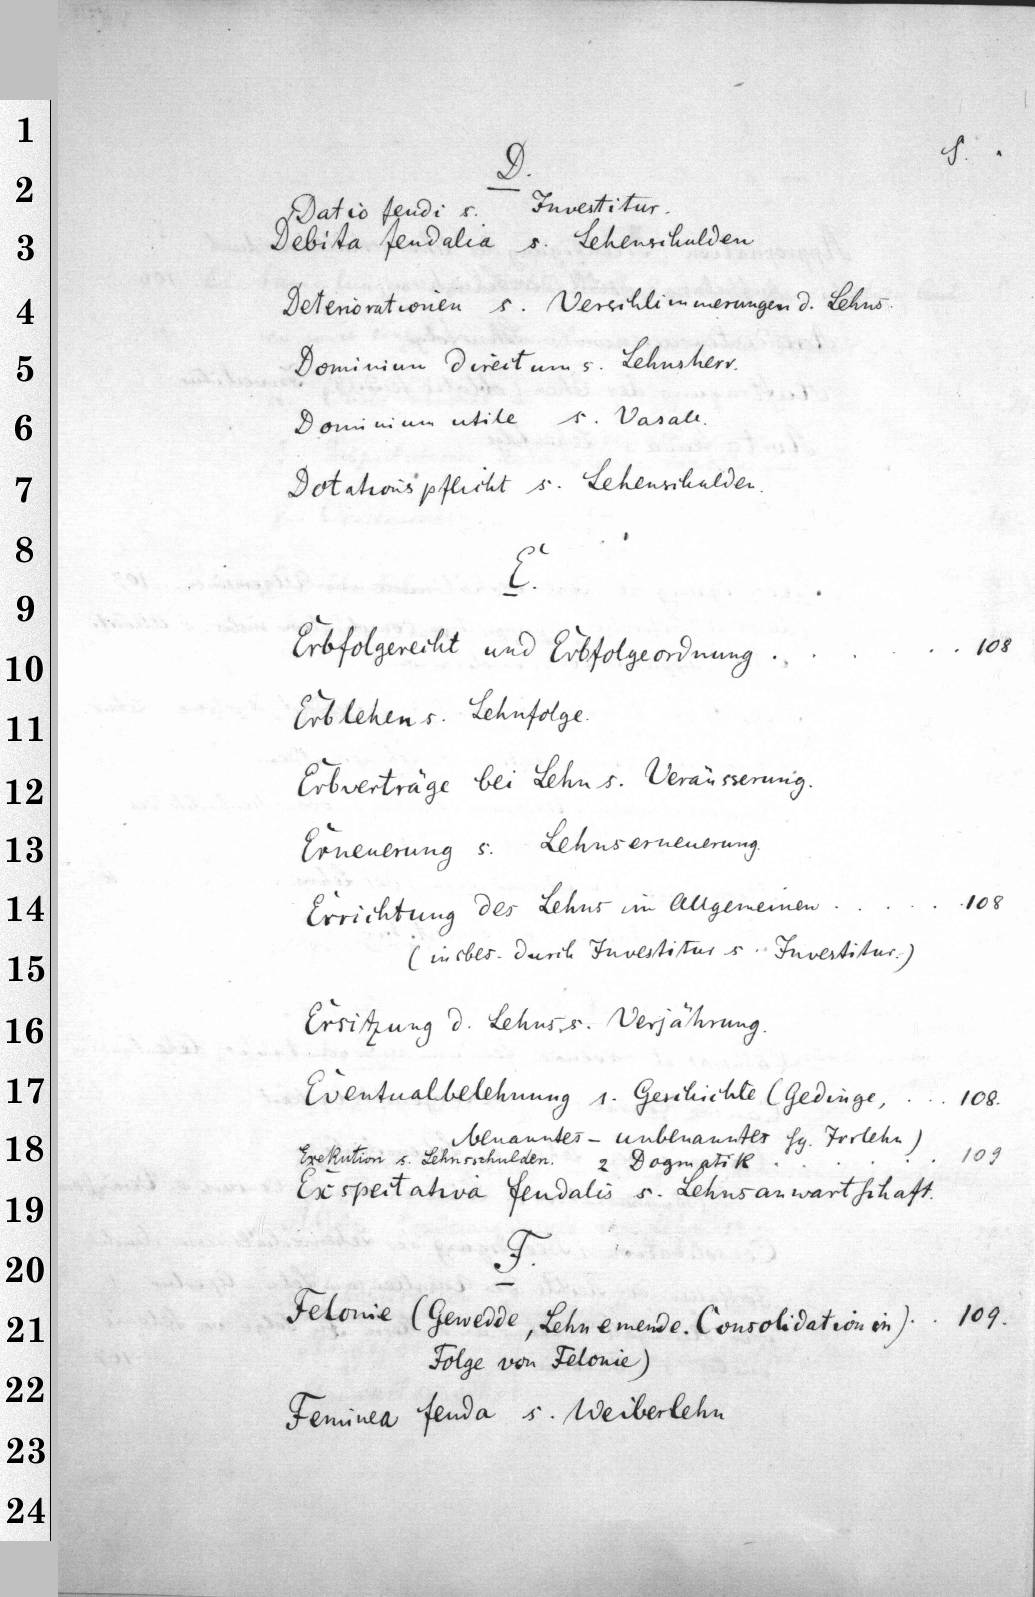 1
2
3
4
5
6
7
8
9
10
11
12
13
14
15
16
17
18
19
20
21
22
23
24
S.
D.
Datio feudi s. Investitur.
Debita feudalia s. Lehenschulden
Deteriorationen s. Verschlimmerungen d. Lehns.
Dominium directum s. Lehnsherr.
Dominium utile s. Vasall.
Dotationspflicht s. Lehenschulden.
E.
Erbfolgerecht und Erbfolgeordnung . . . . . . . 108
Erblehen s. Lehnfolge.
Erbverträge bei Lehn s. Veräusserung.
Erneuerung s. Lehnserneuerung.
Errichtung des Lehns im Allgemeinen . . . . . . 108
(insbes. durch Investitur s. Investitur.)
Ersitzung d. Lehns s. Verjährung.
Eventualbelehnung 1. Geschichte (Gedinge, . . . 108.
benanntes - unbenanntes sg. Irrlehn)
Exekution s. Lehnsschulden. 2 Dogmatik . . . . . . 109
Exspectativa feudalis s. Lehnsanwartschaft.
F.
Felonie (Gewedde, Lehnemende. Consolidation in) . . 109.
Folge von Felonie)
Feminea feuda s. Weiberlehn